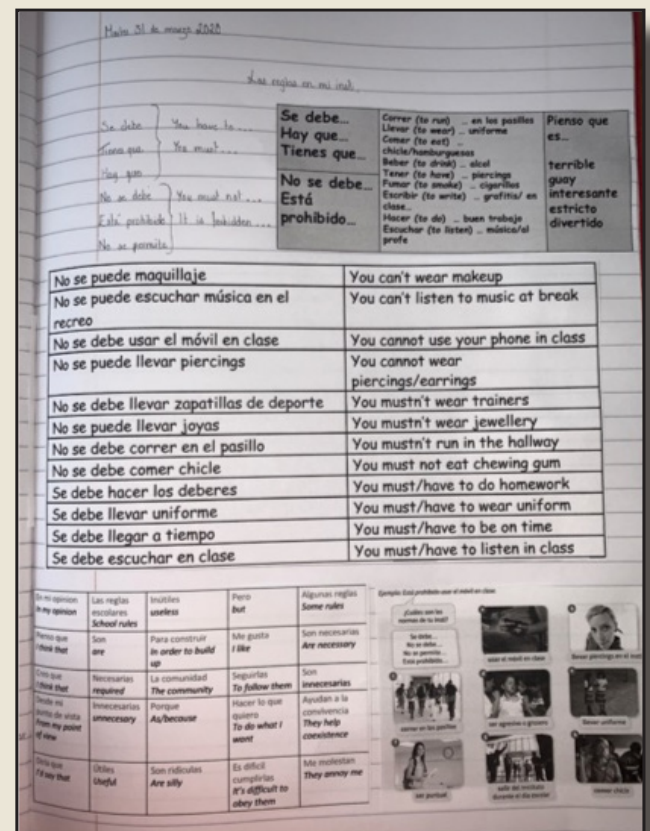 Martes 31 de marzo 2020
Las reglas en mi insti.
Se debe
Tiene que
Hay que
You have to...
You must...
No se debe
Está prohibido
No se permite
You must not...
It is forbidden...
Se debe...
Hay que...
Tienes que...
No se debe...
Está
prohibido...
Correr (to run) … en los pasillos
Llevar (to wear) … uniforme
Comer (to eat) …
chicle/hamburguesas
Beber (to drink) … alcol
Tener (to have) … piercings
Fumar (to smoke) … cigarillos
Escribir (to write) … grafitis/ en
clase…
Hacer (to do) … buen trabajo
Escuchar (to listen) … música/al
profe
Pienso que
es…
terrible
guay
interesante
estricto
divertido
No se puede maquillaje
You can't wear makeup
No se puede escuchar música en el
recreo
You can't listen to music at break
No se debe usar el móvil en clase
You cannot use your phone in class
No se puede llevar piercings
You cannot wear
piercings/earrings
No se debe llevar zapatillas de deporte
You mustn't wear trainers
No se puede llevar joyas
You mustn't wear jewellery
No se debe correr en el pasillo
You mustn't run in the hallway
No se debe comer chicle
You must not eat chewing gum
Se debe hacer los deberes
You must/have to do homework
Se debe llevar uniforme
You must/have to wear uniform
Se debe llegar a tiempo
You must/have to be on time
Se debe escuchar en clase
You must/have to listen in class
En mi opinion
In my opinion
Las reglas
escolares
School rules
Inútiles
useless
Pero
but
Algunas reglas
Some rules
Pienso que
I think that
Son
are
Para construir
In order to build
up
Me gusta
I like
Son necesarias
Are necessary
Creo que
I think that
Necesarias
required
La comunidad
The community
Seguirlas
To follow them
Son
innecesarias
Desde mi
punto de vista
From my point
of view
Innecesarias
unnecesory
Porque
As/because
Hacer lo que
quiero
To do what I
want
Ayudan a la
convivencia
They help
coexistence
Diría que
I'd say that
Útiles
Useful
Son ridículas
Are silly
Es difícil
cumplirlas
It's difficult to
obey them
Me molestan
They annoy me
Ejemplo: Está prohibido usar el móvil en clase.
¿Cuáles son las
normas de tu insti?
Se debe…
No se debe…
No se permite…
Está prohibido…
usar el móvil en clase
llevar piercings en el insti
correr en los pasillos
ser agresivo o grosero
llevar uniforme
ser puntual
salir del instituto
durante el día escolar
comer chicle